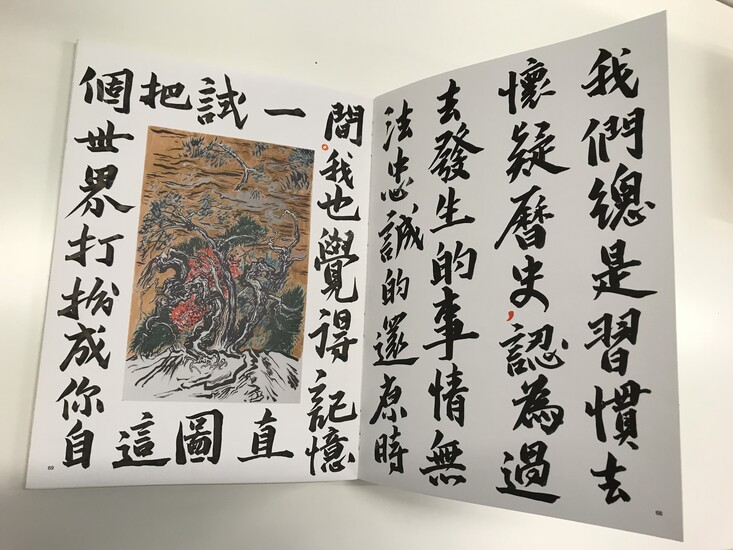 我們總是習慣去
懷疑曆史，認為過
去發生的事情無
法忠誠的還原時
間。我也覺得記憶
一直
試圖
把這
個世界打扮成你自
69
68